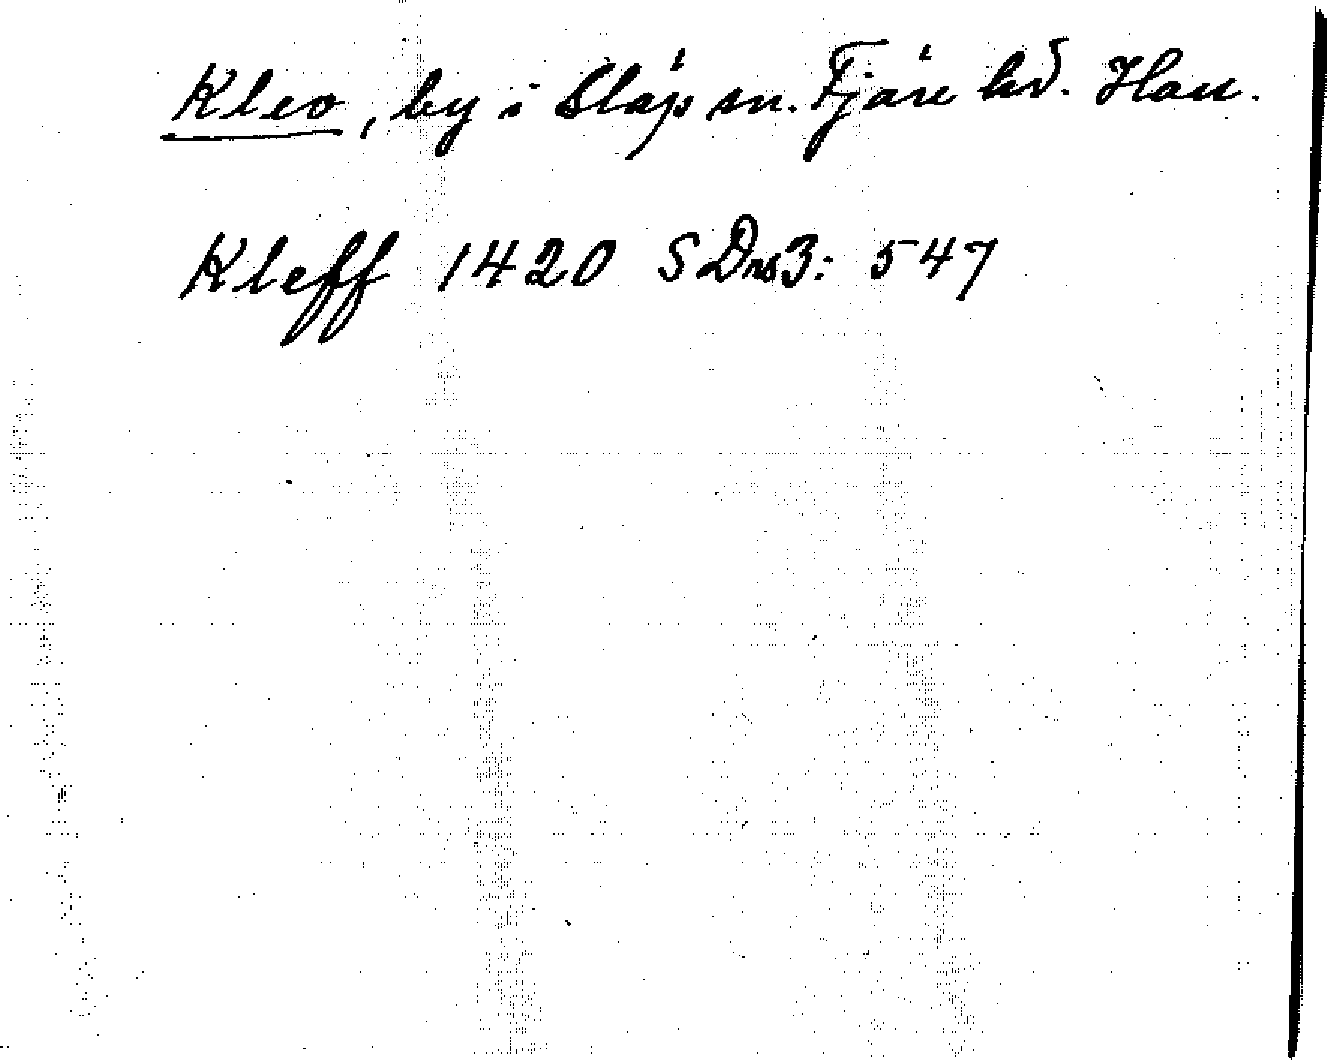 Klev, by i Släp sn. Fjäre hd. Hall.
Kleff 1420 SDns3: 547